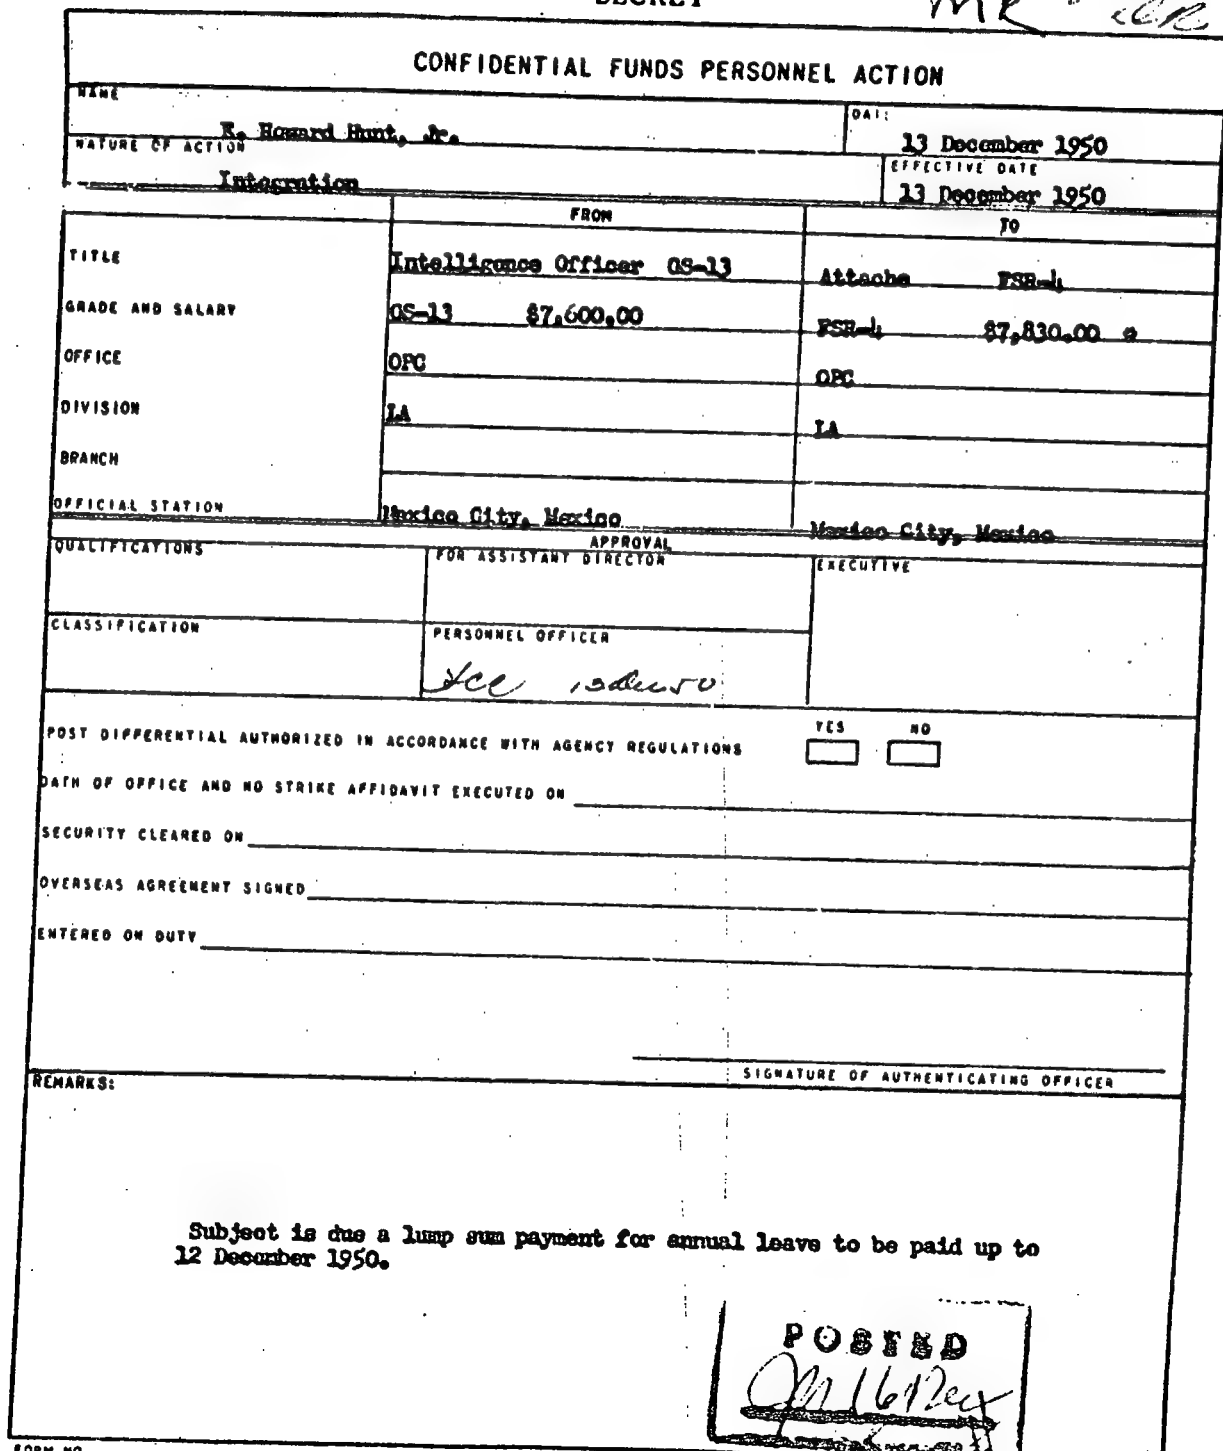 SECRET
CONFIDENTIAL FUNDS PERSONNEL ACTION
NAME
DATE
E. Howard Hunt, Jr.
13 December 1950
NATURE OF ACTION
EFFECTIVE DATE
Integration
13 December 1950
FROM
TO
TITLE
Intelligence Officer GS-13
Attache FSR-4
GRADE AND SALARY
GS-13 $7,600.00
FSR-4 $7,830.00
OFFICE
OPC
OPC
DIVISION
LA
LA
BRANCH
OFFICIAL STATION
Mexico City, Mexico
Mexico City, Mexico
APPROVAL
QUALIFICATIONS
FOR ASSISTANT DIRECTOR
EXECUTIVE
CLASSIFICATION
PERSONNEL OFFICER
YES NO
POST DIFFERENTIAL AUTHORIZED IN ACCORDANCE WITH AGENCY REGULATIONS
OATH OF OFFICE AND NO STRIKE AFFIDAVIT EXECUTED ON
SECURITY CLEARED ON
OVERSEAS AGREEMENT SIGNED
ENTERED ON DUTY
SIGNATURE OF AUTHENTICATING OFFICER
REMARKS:
Subject is due a lump sum payment for annual leave to be paid up to
12 December 1950.
POSTED
FORM NO.